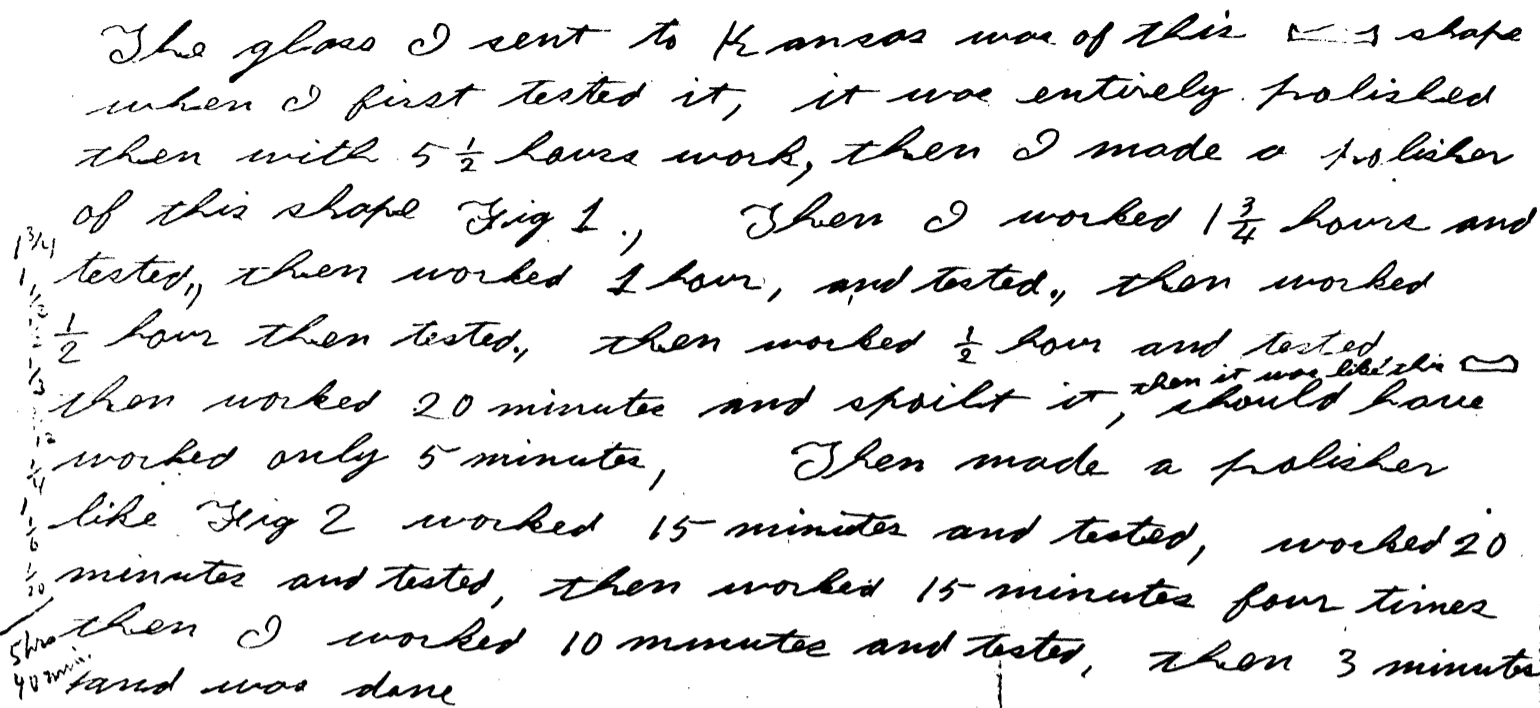 The glass I sent to Kansas was of this shape
when I first tested it, it was entirely polished
then with 5 1/2 hours work, then I made a polisher
of this shape Fig 1., Then I worked 1 3/4 hours and
tested., then worked 1 hour, and tested., then worked
1/2 hour then tested., then worked 1/2 hour and tested
then it was like this
then worked 20 minutes and spoilt it, should have
worked only 5 minutes, Then made a polisher
like Fig 2 worked 15 minutes and tested, worked 20
minutes and tested, then worked 15 minutes four times
then I worked 10 minutes and tested, then 3 minutes
and was done
1 3/4
1
1/2
1/2
1/3
1/4
1
1/6
1/20
5 hrs
40 min.